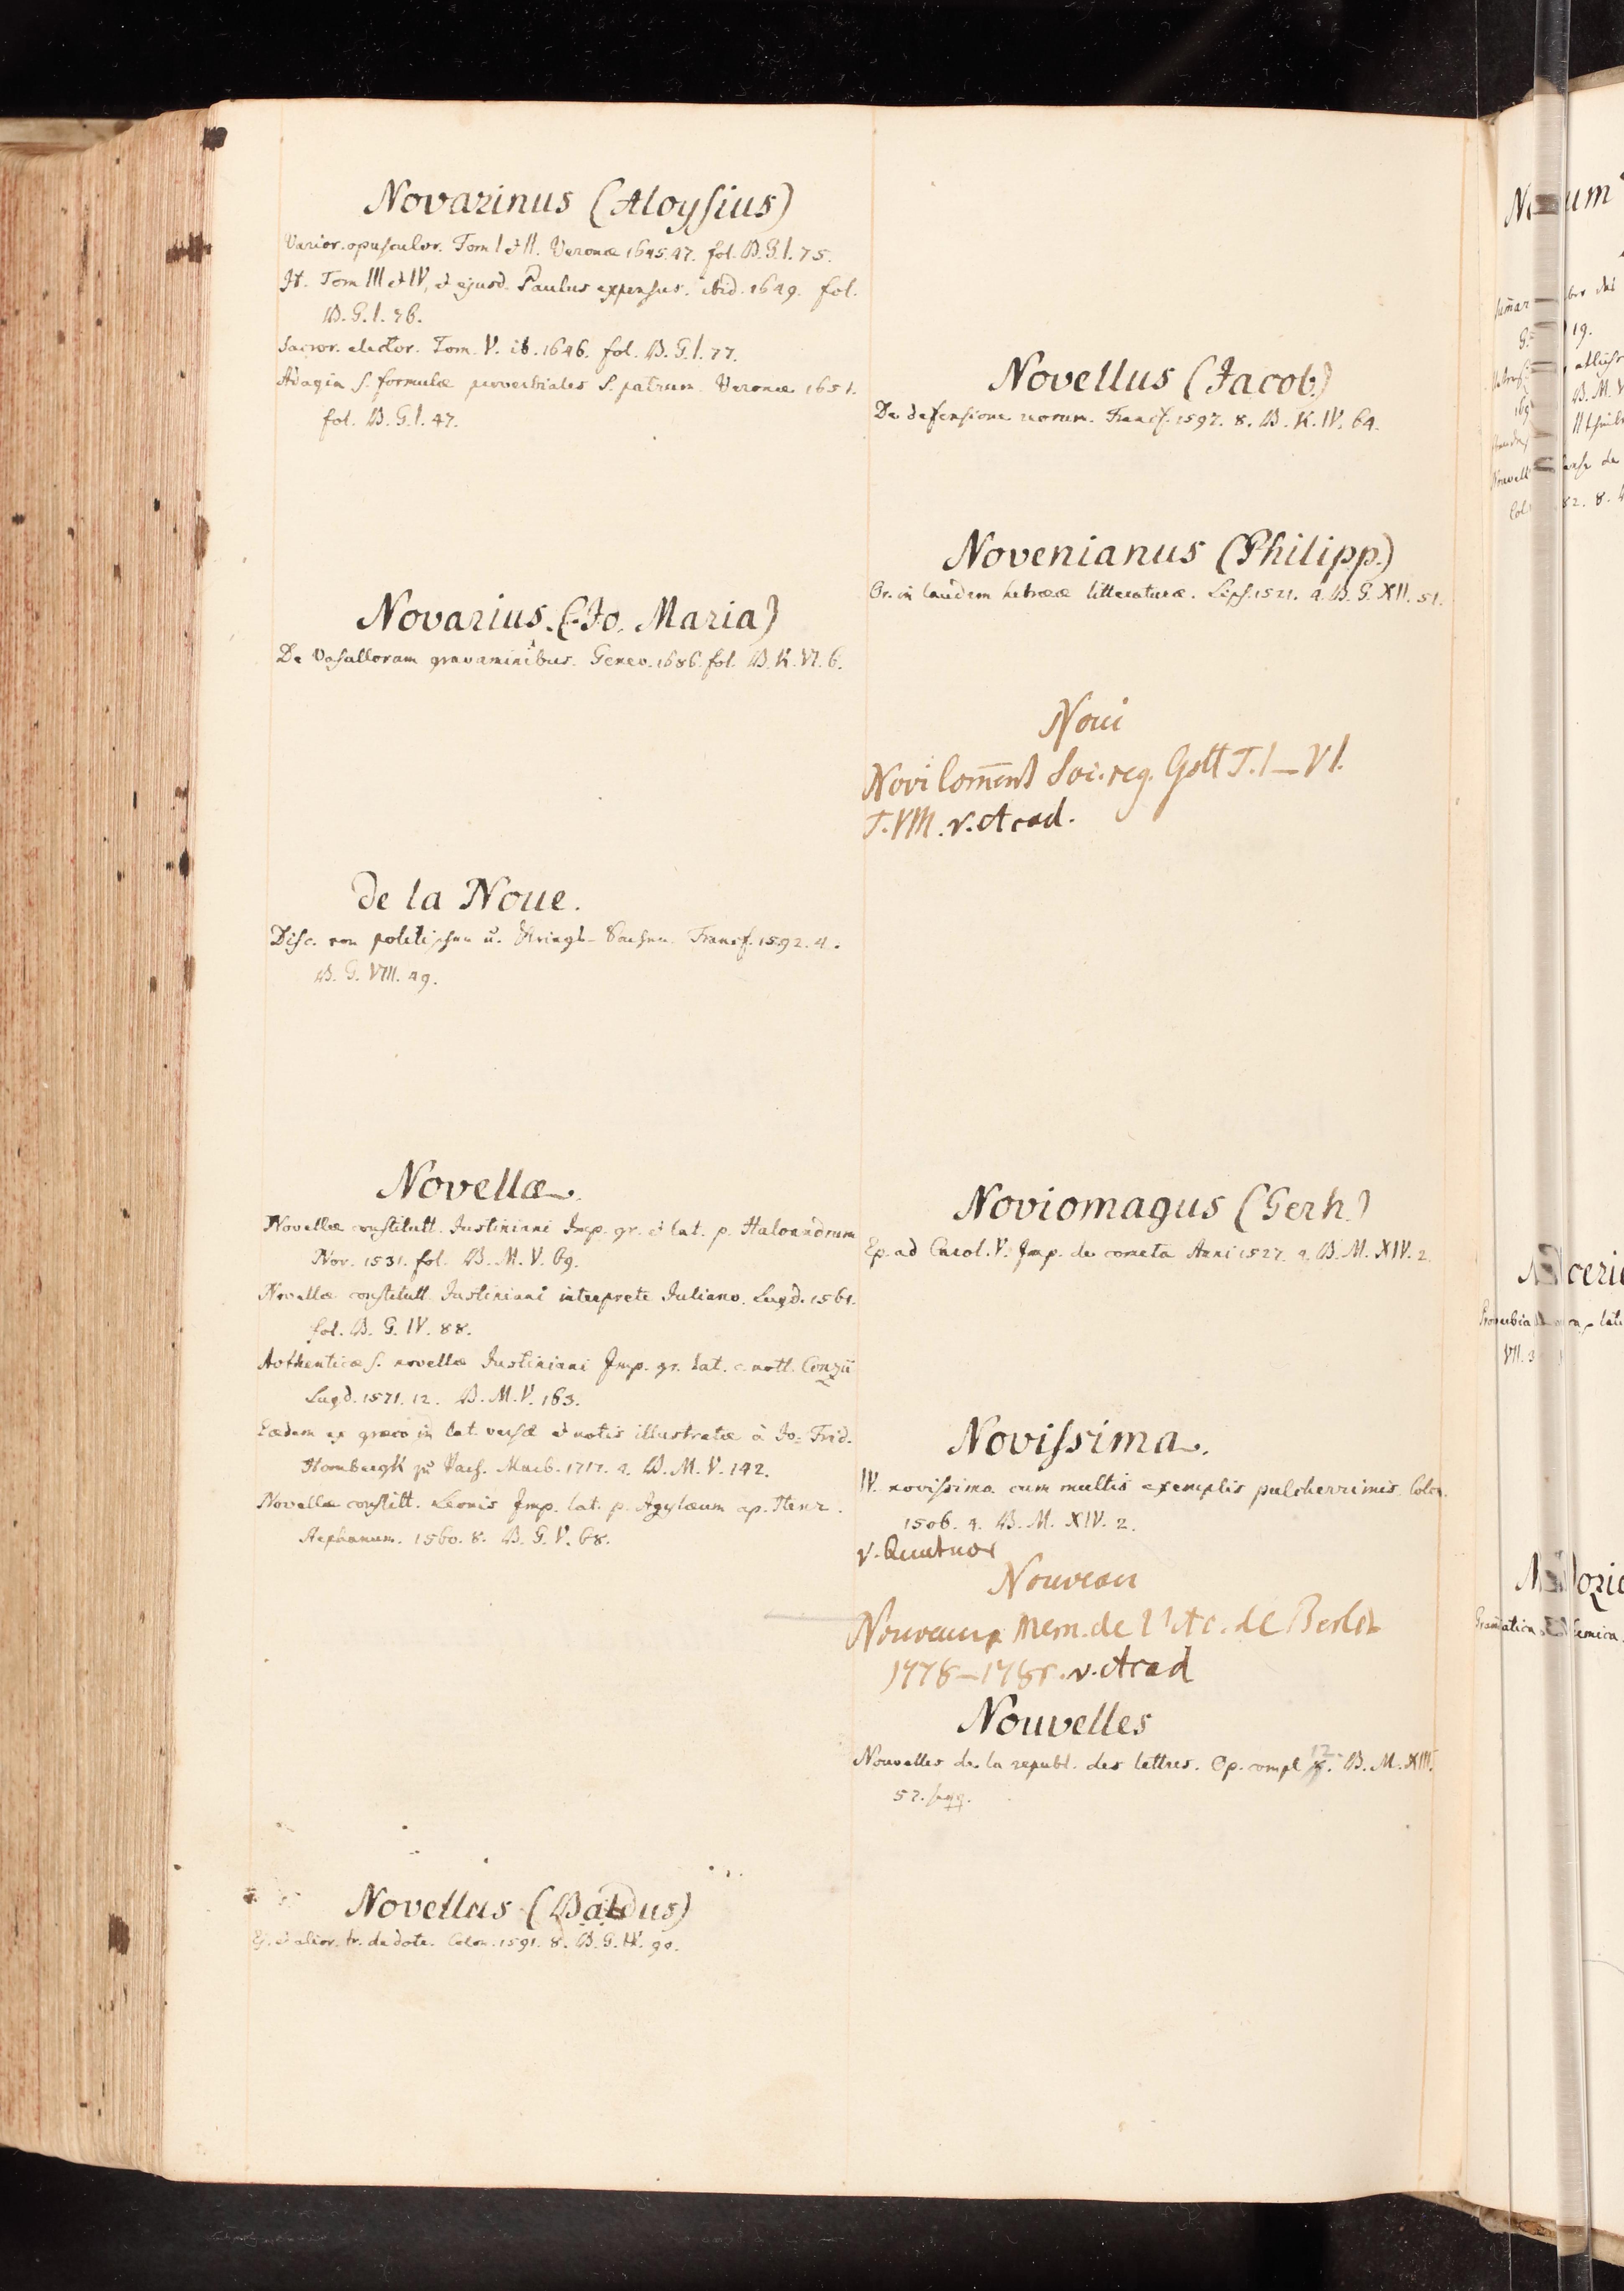 Novarinus (Aloysius)
Varior. opusculor. Tom I et II. Veronæ 1645.47. fol. B.G.I.75.
It. Tom III et IV, et ejusd. Paulus expensus. ibid. 1649. fol.
B.G.I.76.
Sacror. elector. Tom. V. ib. 1646. fol. B.G.I.77.
Adagia s. formulæ proverbiales S. patrum. Veronæ 1651.
fol. B.G.I.47.
Novarius. (Jo. Maria)
De Vasallorum gravaminibus. Genev. 1686. fol. B.K.VI.6.
de la Noue.
Disc. von politischen u. Kriegs-Sachen. Francf. 1592. 4.
B.G.VIII.49.
Novellæ.
Novellæ constitutt. Justiniani Imp. gr. et lat. p. Haloandrum
Nor. 1531. fol. B.M.V.69.
Novellæ constitutt. Justiniani interprete Juliano. Lugd. 1561.
fol. B.G.IV.88.
Authenticæ s. novellæ Justiniani Imp. gr. lat. c. nott.
Lugd. 1571. 12. B.M.V.163.
Eædem ex græco in lat. versæ et notis illustratæ à Jo. Frid.
Hombergk zu Vach. Marb. 1717. 4. B.M.V.142.
Novellæ constitt. Leonis Imp. lat. p. Agylæum ap. Henr.
Stephanum. 1560. 8. B.G.V.68.
Novellus (Baldus)
Ej. et alior. tr. de dote. Colon. 1591. 8. B.G. 90.
Novellus (Jacob.)
De defensione reorum. Francf. 1597. 8. B.K.IV.64.
Novenianus (Philipp.)
Or. in laudem hebrææ litteraturæ. Lips. 1521. 4. B.G.XII.51.
Noui
Novi Com̄ent Soc. reg. Gott T.I–VI.
T.VIII. v. Acad.
Noviomagus (Gerh.)
Ep. ad Carol. V. Imp. de cometa Anni 1527. 4. B.M.XIV.2.
Novissima.
IV. novissima cum multis exemplis pulcherrimis. Colon.
1506. 4. B.M.XIV.2.
v. Quatuor
Nouveau
Nouveaux Mem. de l'Ac. de Berlin
v. Acad
Nouvelles
Nouvelles de la republ. des lettres. Op. compl 12. B.M.XIII.
57. sqq.